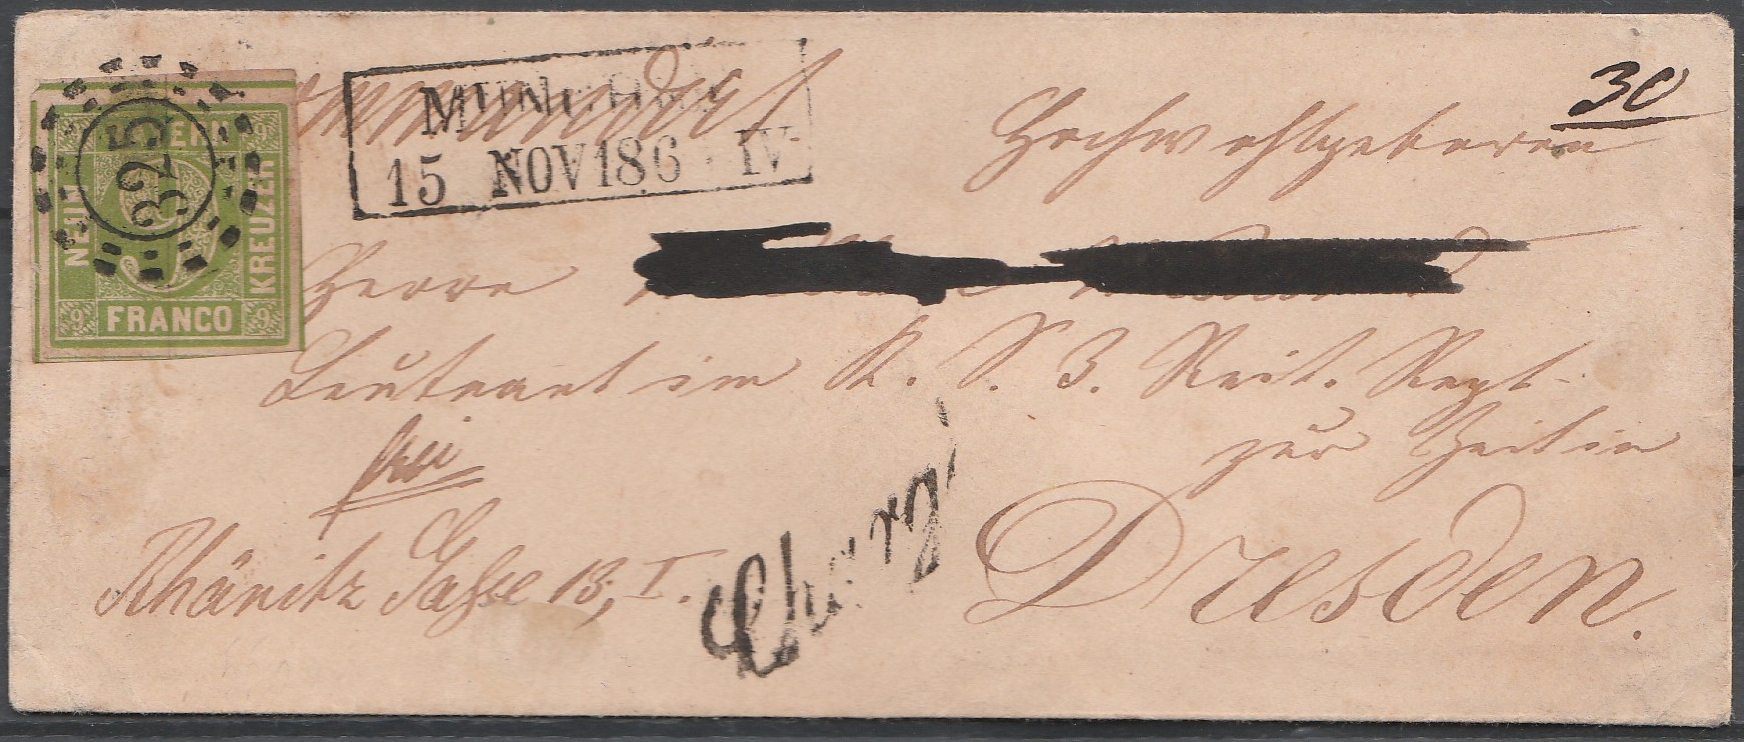 30
MÜNCHEN
15 NOV 186 IV.
325
NEUN
KREUZER
FRANCO
9 9 9
Recommandirt
Hochwohlgeboren
Herrn
Leutnant im K. S. 3. Reit. Regt.
zur Zeit in
frei
Dresden.
Rhänitz Gasse 13, I.
Chargé